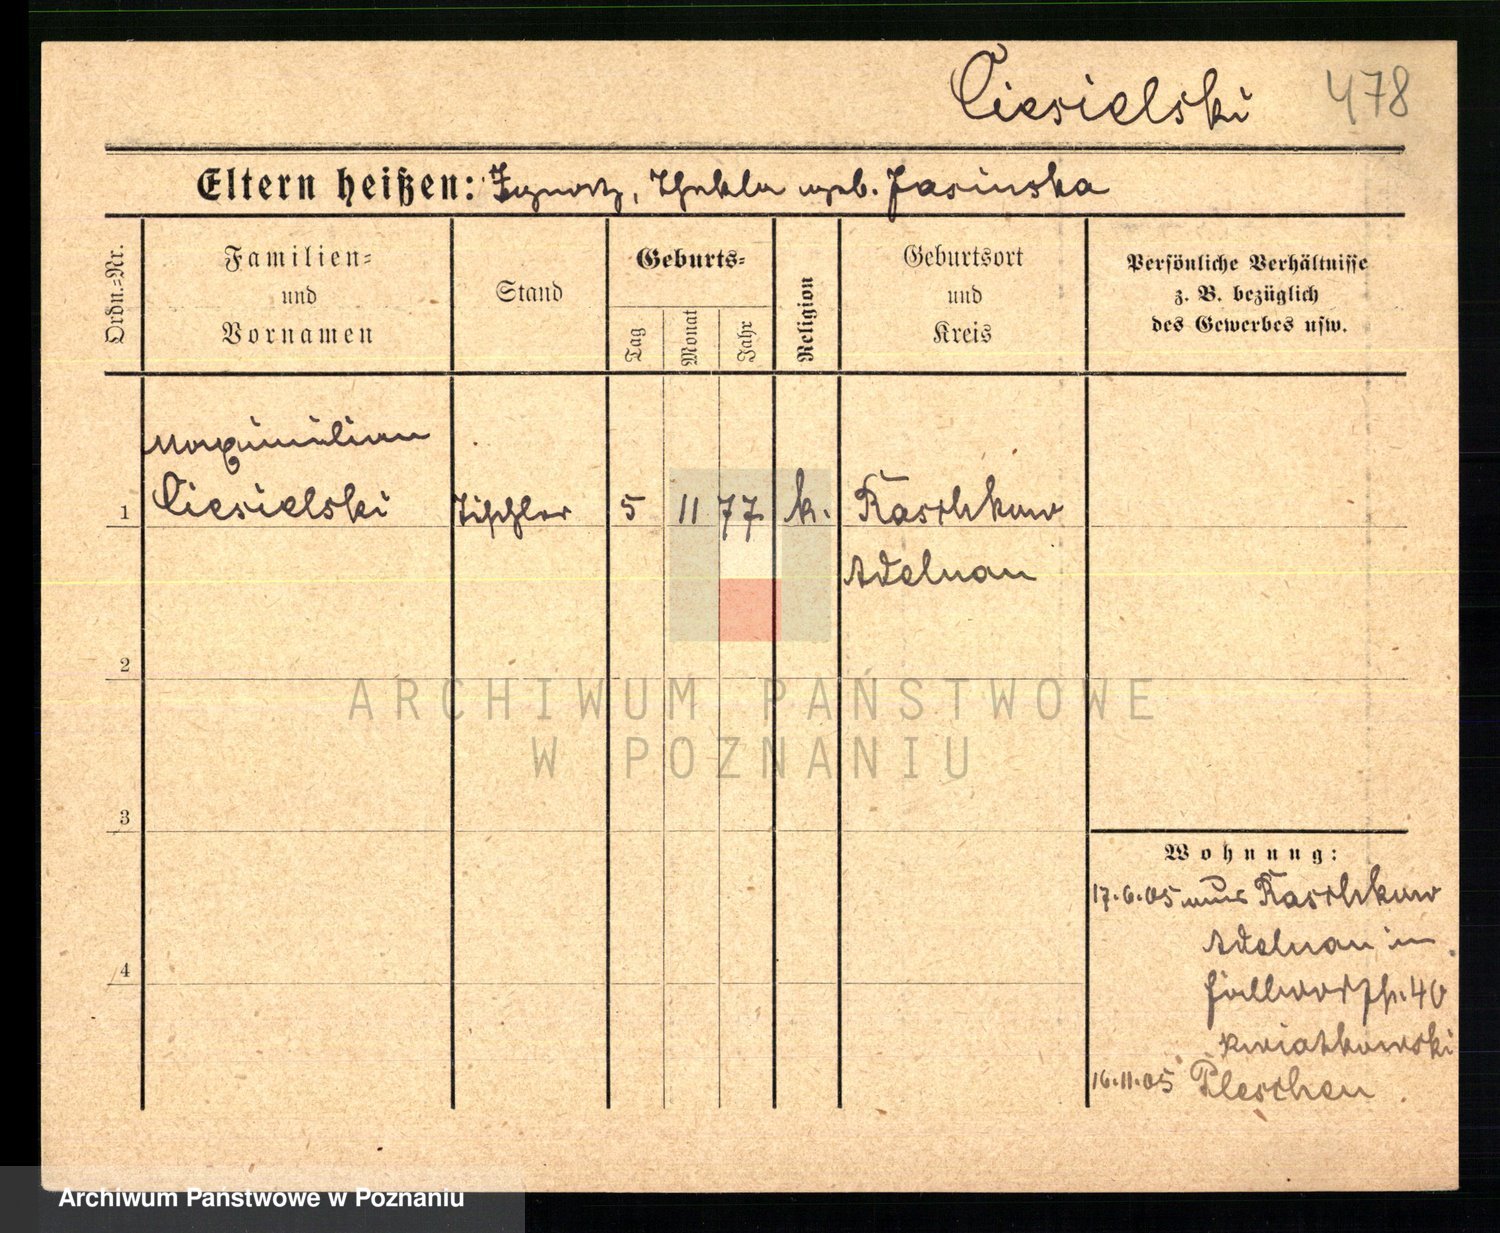 Ciesielski 478
Eltern heißen: Ignatz, Thekla geb. Jasinska
Ordn.-Nr.
Familien-
und
Vornamen
Stand
Geburts-
Tag
Monat
Jahr
Religion
Geburtsort
und
Kreis
Persönliche Verhältnisse
z. B. bezüglich
des Gewerbes usw.
Maximilian
1 Ciesielski Tischler 5 11 77 k. Raschkow
Adelnau
2
ARCHIWUM PAŃSTWOWE
W POZNANIU
3
Wohnung:
17.6.05 aus Raschkow
Adelnau in
4
40
Kwiatkowski
16.11.05 Pleschen
Archiwum Państwowe w Poznaniu